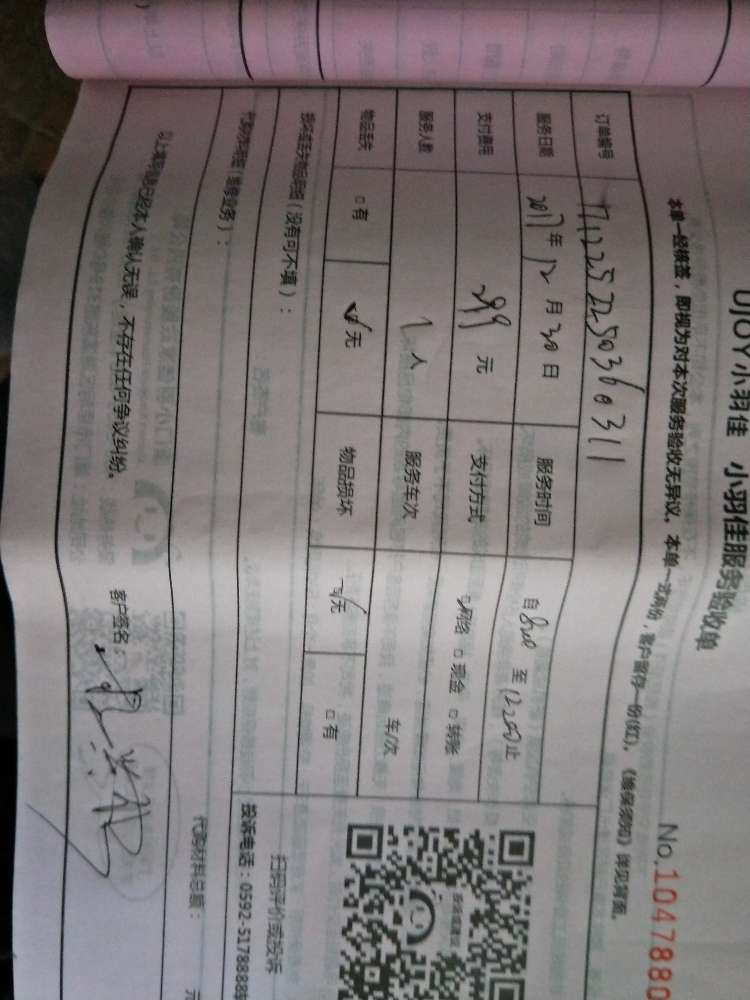 UJOY小羽佳 小羽佳服务验收单
No.1047880
本单一经核签，即视为对本次服务验收无异议。本单一式两份，客户留存一份(红)。《维保须知》详见背面。
订单编号 1712252250360311
服务日期 2017年12月30日 服务时间 自 8:00 至 12:00 止
支付费用 元 支付方式 网络 现金 转账
服务人数 1 人 服务车次 车/次
物品丢失 有 无 物品损坏 无 有
损坏或丢失物品明细（没有可不填）：
扫码评价或投诉
投诉电话：0592-5178888
代购材料总额： 元
以上填写信息已经本人确认无误，不存在任何争议纠纷。
客户签名：